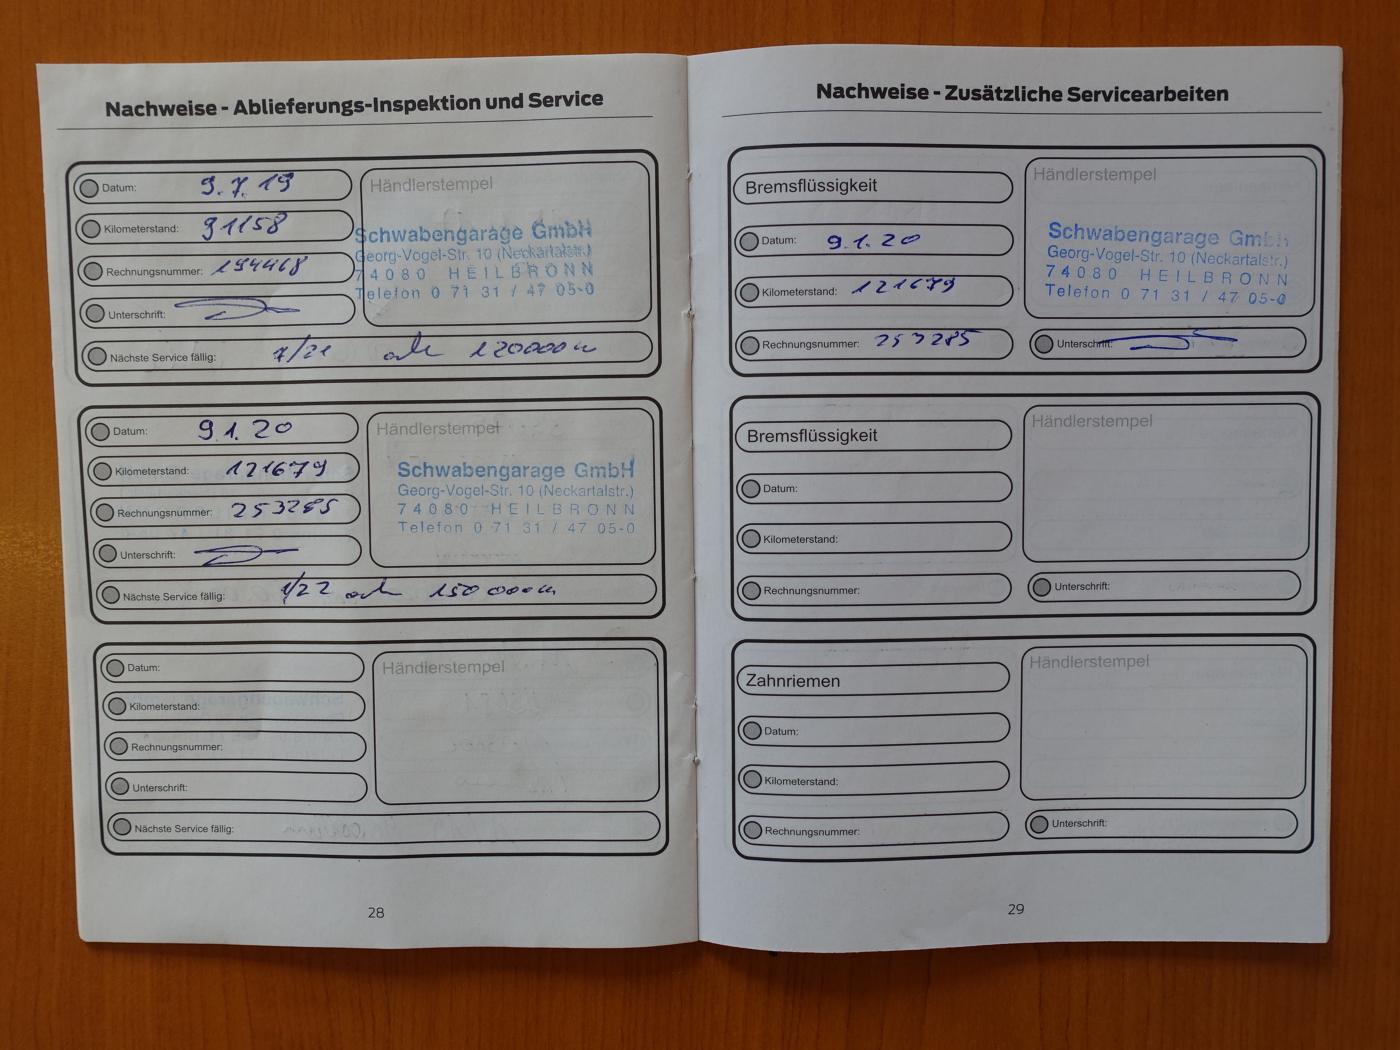 Nachweise - Ablieferungs-Inspektion und Service
Datum: 9.7.19
Kilometerstand: 91158
Rechnungsnummer: 194468
Unterschrift:
Händlerstempel
Schwabengarage GmbH
Georg-Vogel-Str. 10 (Neckartalstr.)
74080 HEILBRONN
Telefon 0 71 31 / 47 05-0
Nächste Service fällig: 7/21 120000
Datum: 9.1.20
Kilometerstand: 121679
Rechnungsnummer: 253285
Unterschrift:
Händlerstempel
Schwabengarage GmbH
Georg-Vogel-Str. 10 (Neckartalstr.)
74080 HEILBRONN
Telefon 0 71 31 / 47 05-0
Nächste Service fällig: 1/22 150000
Datum:
Kilometerstand:
Rechnungsnummer:
Unterschrift:
Händlerstempel
Nächste Service fällig:
28
Nachweise - Zusätzliche Servicearbeiten
Bremsflüssigkeit
Datum: 9.1.20
Kilometerstand: 121679
Rechnungsnummer: 253285
Händlerstempel
Schwabengarage GmbH
Georg-Vogel-Str. 10 (Neckartalstr.)
74080 HEILBRONN
Telefon 0 71 31 / 47 05-0
Unterschrift:
Bremsflüssigkeit
Datum:
Kilometerstand:
Rechnungsnummer:
Händlerstempel
Unterschrift:
Zahnriemen
Datum:
Kilometerstand:
Rechnungsnummer:
Händlerstempel
Unterschrift:
29